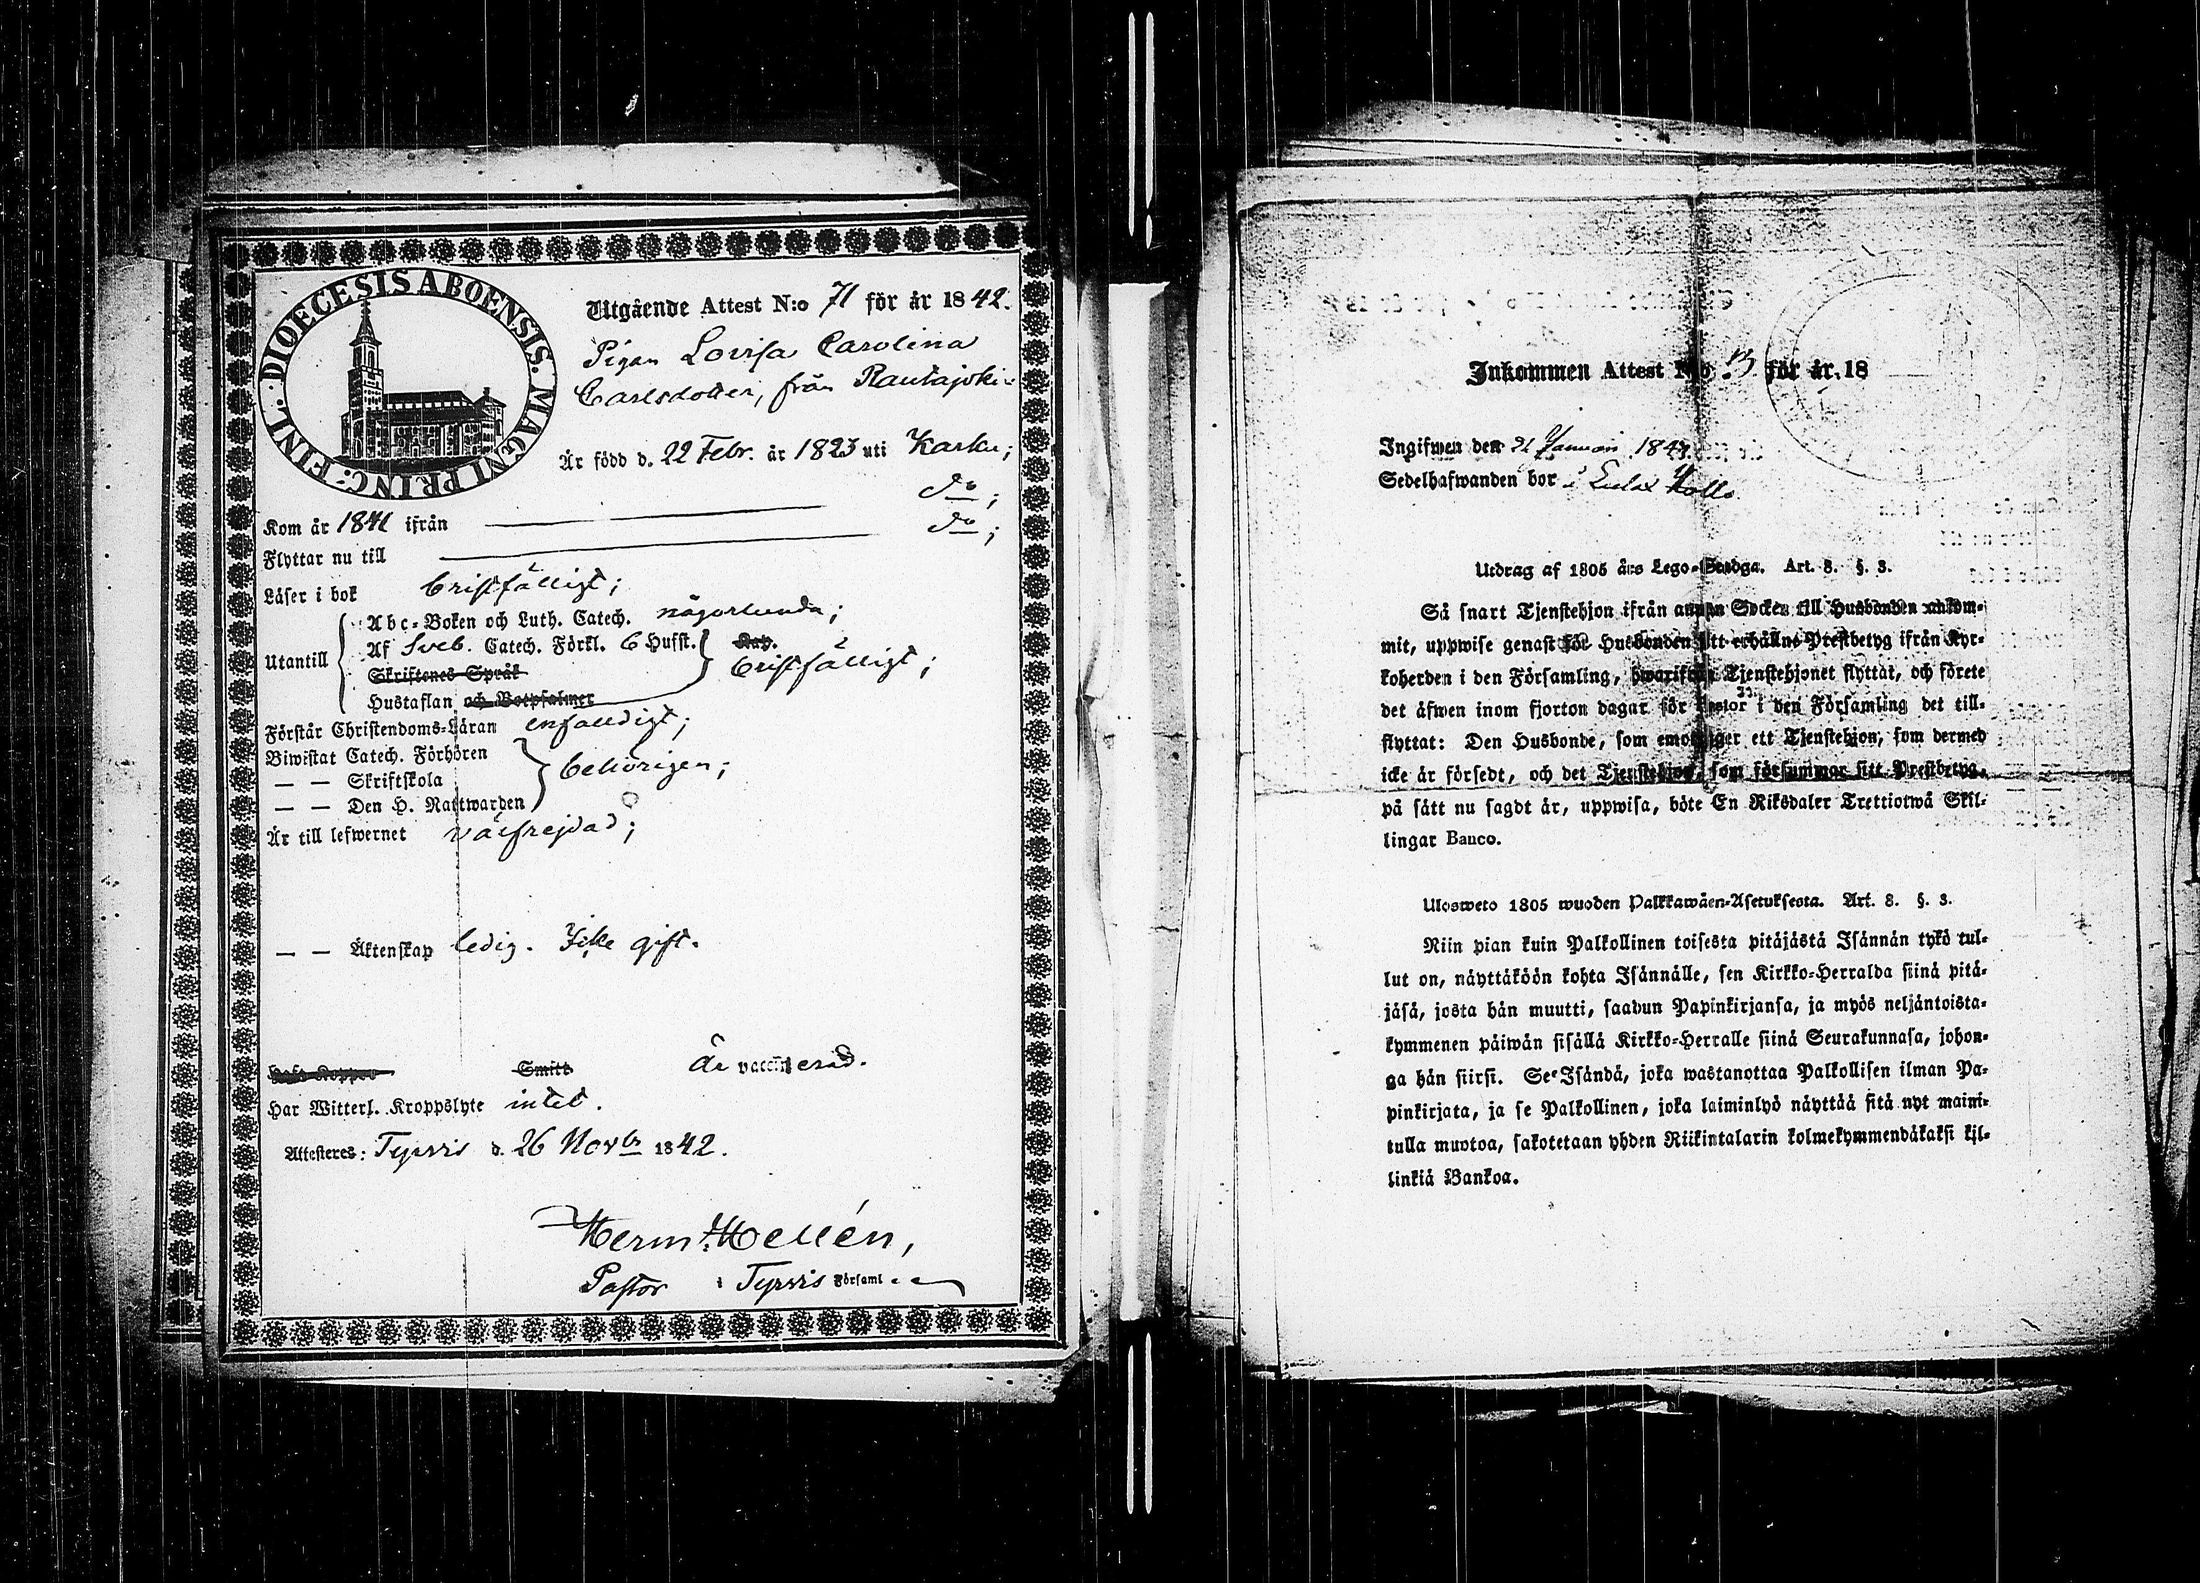 DIOECESIS ABOENSIS. MAGNI PRINC: FINL:
Utgående Attest N:o 71 för år 1842.
Pigan Lovisa Carolina
Carlsdotter, från Rautajoki
Är född d. 22 Febr. år 1823 uti Karku;
Kom år 1841 ifrån do;
Flyttar nu till do;
Läser i bok Bristfälligt;
Abc-Boken och Luth. Catech. någorlunda;
Utantill Af Sveb. Catech. Förkl. 6 Hufst. Bristfälligt;
Skriftenes Språk
Hustaflan och Botpsalmer
Förstår Christendoms-Läran enfaldigt;
Biwistat Catech. Förhören
— — Skriftskola behörigen;
— — Den H. Nattwarden
Är till lefwernet välfrejdad;
— — Äktenskap ledig. Icke gift.
Haft Koppor Smitt är vaccinerad.
Har Witterl. Kroppslyte intet.
Attesteres: Tyrvis d. 26 Novbr 1842.
Herm: Hellén,
Pastor i Tyrvis Församl
Inkommen Attest N:o 13 för år 18
Ingifwen den 21 Januari 1843
Sedelhafwanden bor i
Utdrag af 1805 års Lego-Stadga. Art. 8. §. 3.
Så snart Tjenstehjon ifrån annan Socken till Husbonden ankom-
mit, uppwise genast för Husbonden sitt erhållne Prestbetyg ifrån Kyr-
koherden i den Församling, hwarifrån Tjenstehjonet flyttat, och förete
det äfwen inom fjorton dagar för Pastor i den Församling det till-
flyttat: Den Husbonde, som emottager ett Tjenstehjon, som dermed
icke är försedt, och det Tjenstehjon, som försummar sitt Prestbetyg,
på sätt nu sagdt är, uppwisa, böte En Riksdaler Trettiotwå Skil-
lingar Banco.
Ulosweto 1805 wuoden Palkkawäen-Asetuksesta. Art. 8. §. 3.
Niin pian kuin Palkollinen toisesta pitäjästä Isännän tykö tul-
lut on, näyttäköön kohta Isännälle, sen Kirkko-Herralda siinä pitä-
jäsä, josta hän muutti, saadun Papinkirjansa, ja myös neljäntoista-
kymmenen päiwän sisällä Kirkko-Herralle siinä Seurakunnasa, johon-
ga hän siirsi. Se Isändä, joka wastanottaa Palkollisen ilman Pa-
pinkirjata, ja se Palkollinen, joka laiminlyö näyttää sitä nyt maini-
tulla muotoa, sakotetaan yhden Riikintalarin kolmekymmendäkaksi kil-
linkiä Bankoa.